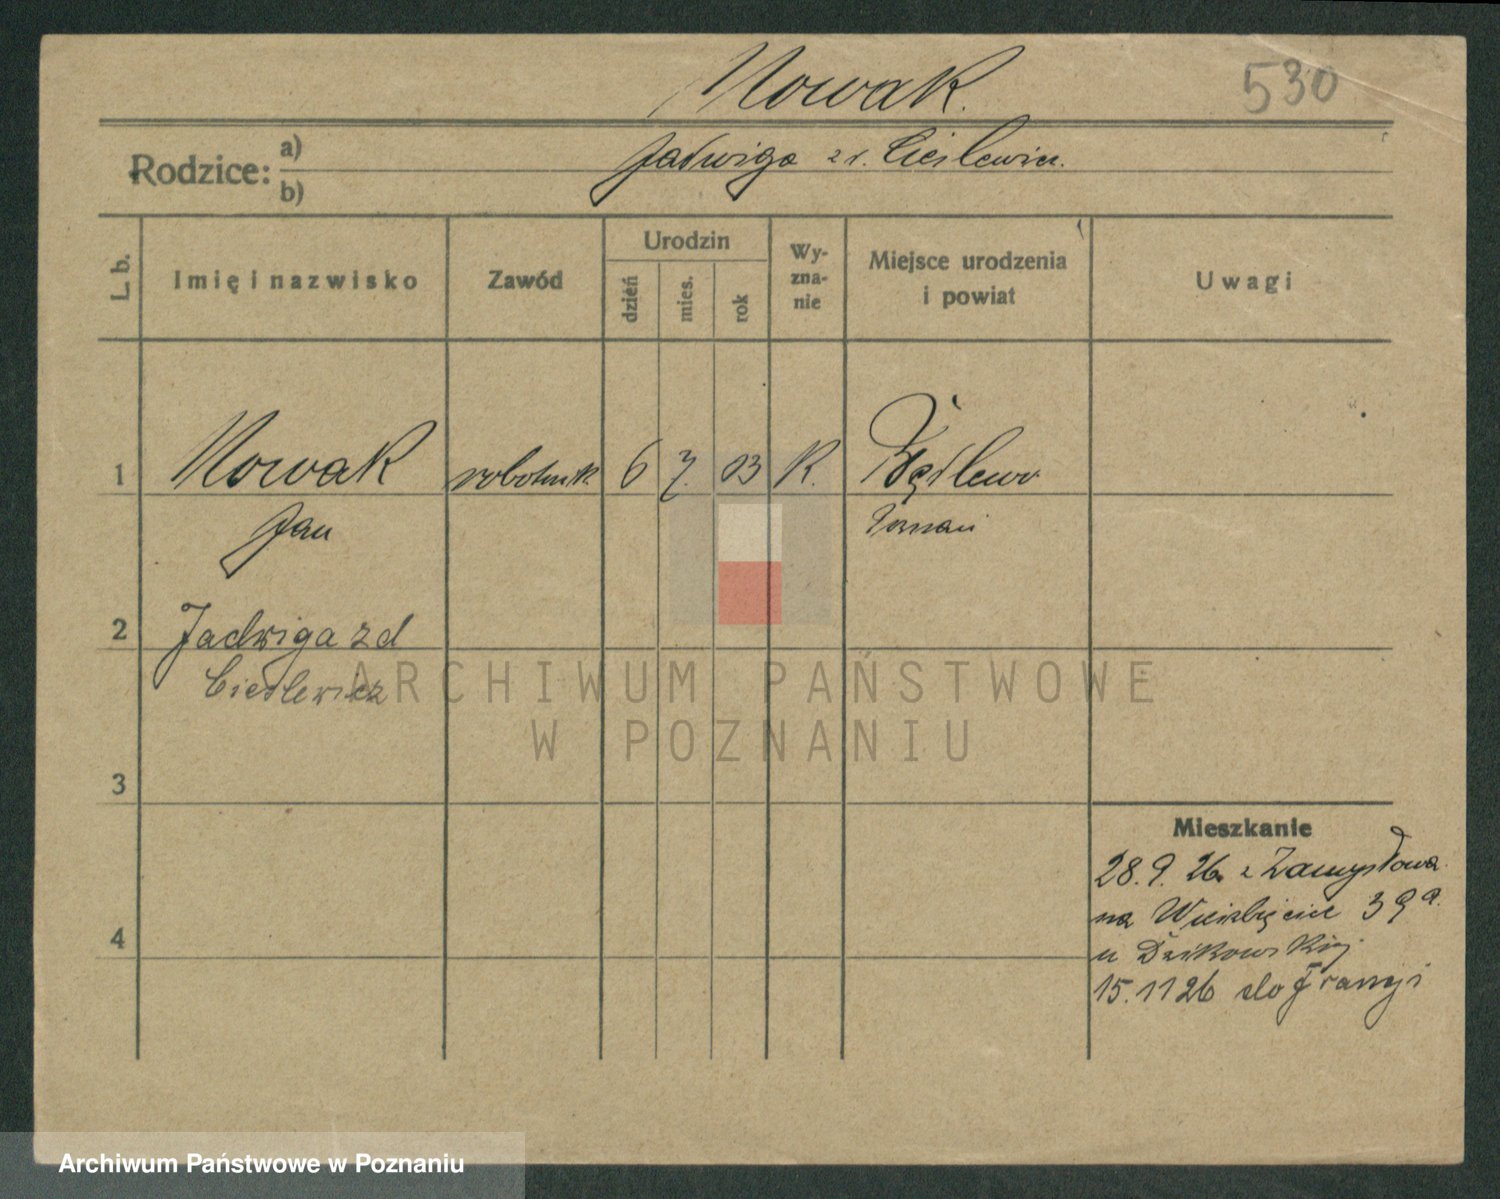 530
Nowak.
Rodzice: a)
b)
Jadwiga z d. Cieślewicz.
L. b.
Imię i nazwisko
Zawód
Urodzin
dzień
mies.
rok
Wy-
zna-
nie
Miejsce urodzenia
i powiat
Uwagi
1 Nowak robotnik 6 7. 03 K. Będlewo
Jan Poznań
2 Jadwiga z d
Cieślewicz
ARCHIWUM PAŃSTWOWE
W POZNANIU
3
Mieszkanie
28.9.26. z Zamysłowa
na Wierzbięcice 39a.
u
4
15.11 26 do Francji
Archiwum Państwowe w Poznaniu